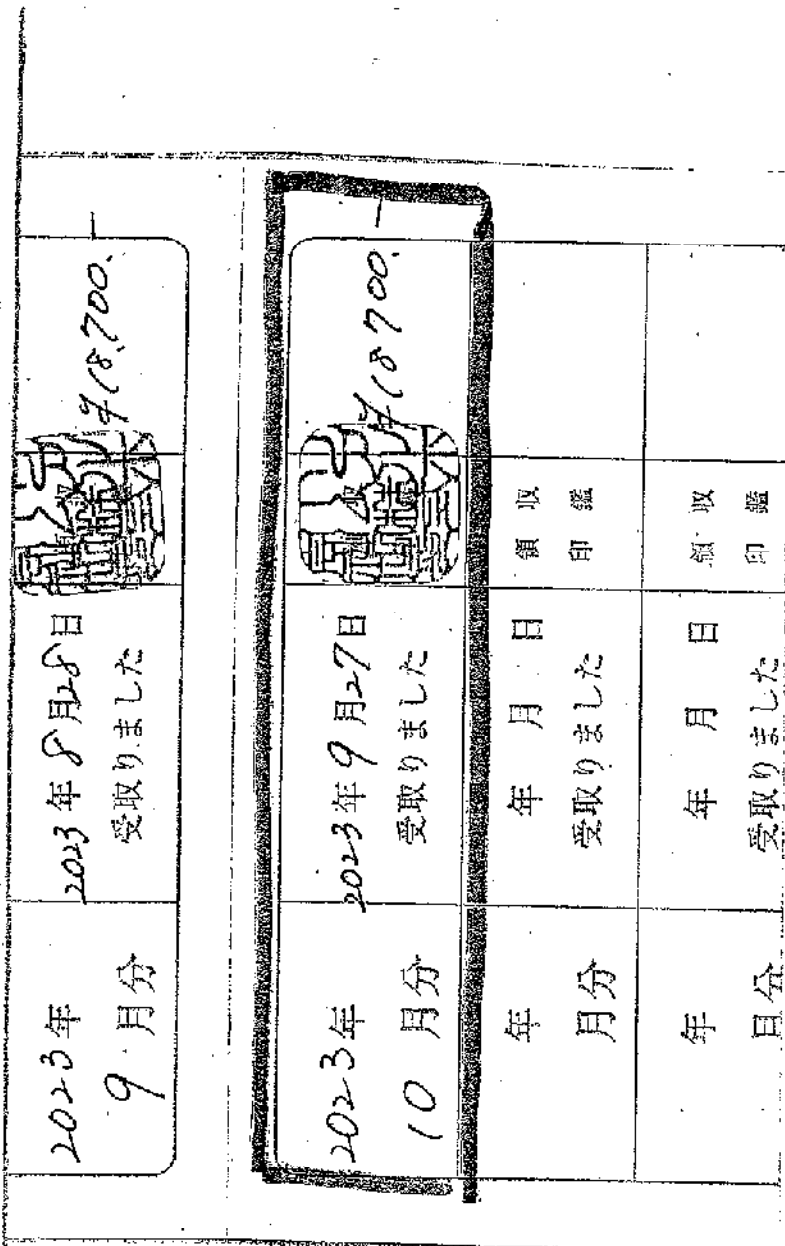 2023年
9月分
2023年8月28日
受取りました
¥18,700.-
2023年
10月分
2023年9月27日
受取りました
¥18700.-
年
月分
年 月 日
受取りました
領収
印鑑
年
月分
年 月 日
受取りました
領収
印鑑